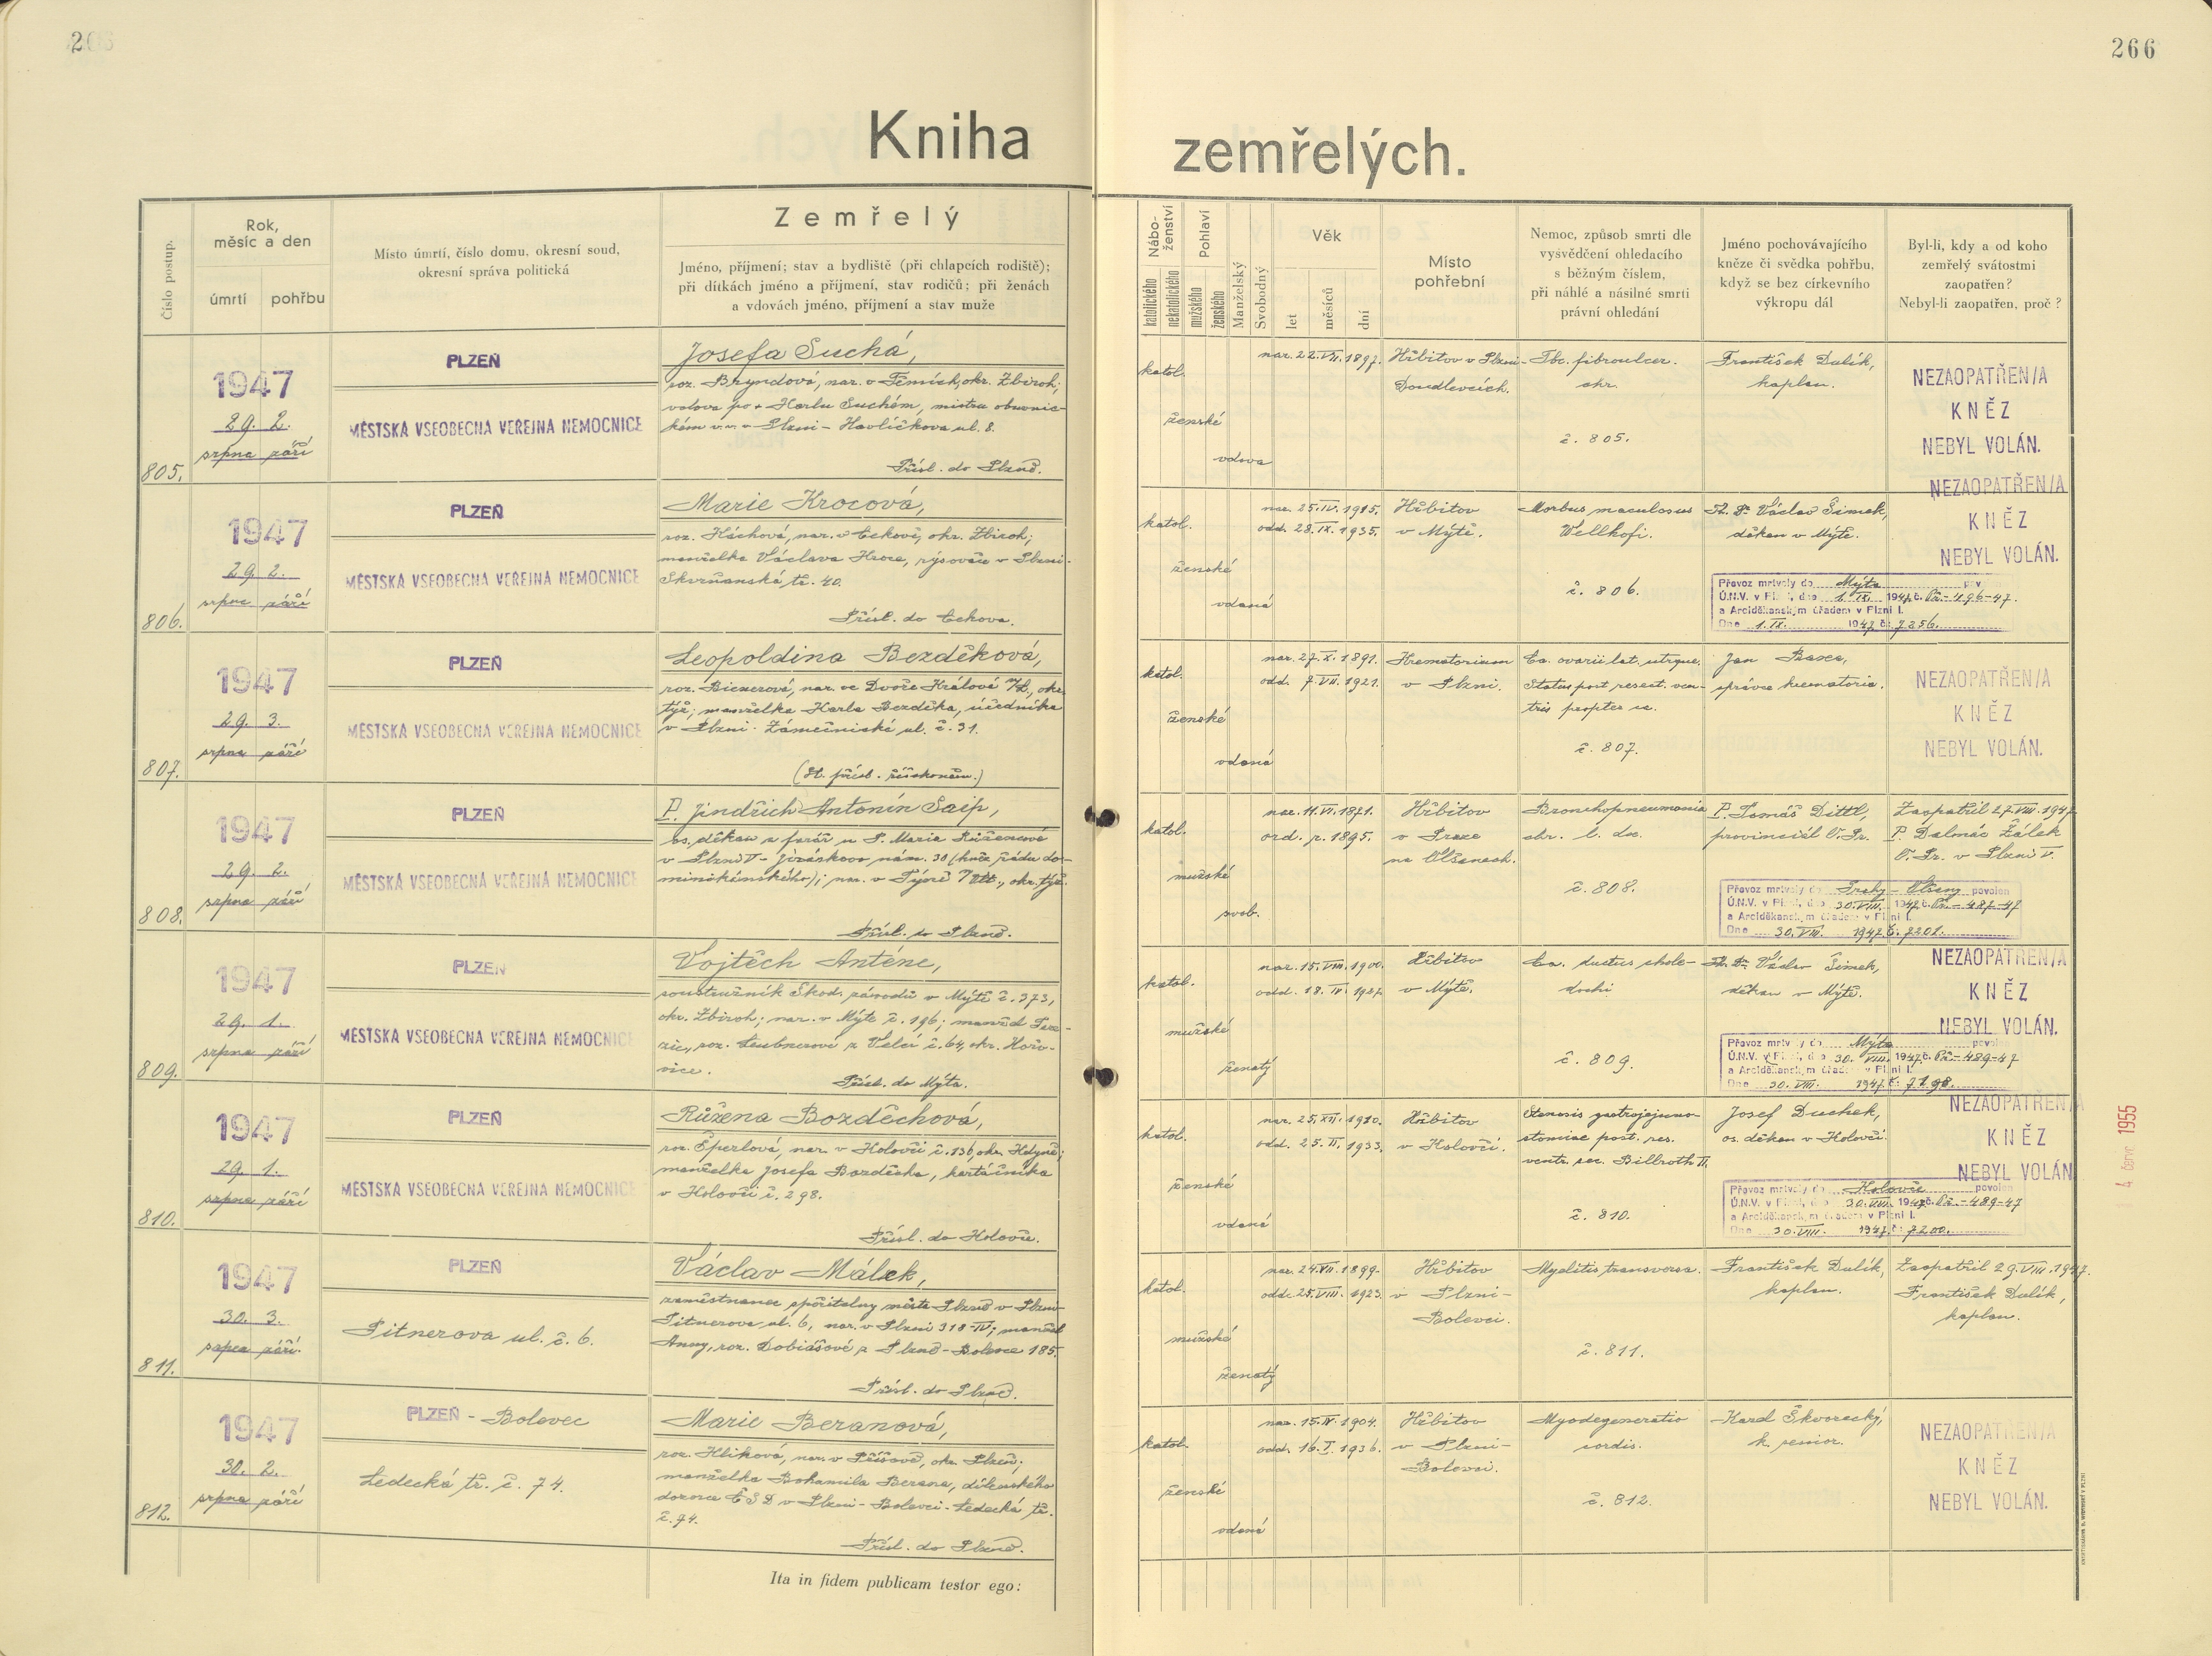 266
Kniha zemřelých.
Číslo postup.
Rok, měsíc a den
úmrtí
pohřbu
Místo úmrtí, číslo domu, okresní soud,
okresní správa politická
Zemřelý
Jméno, příjmení; stav a bydliště (při chlapcích rodiště);
při dítkách jméno a příjmení, stav rodičů; při ženách
a vdovách jméno, příjmení a stav muže
Nábo-
ženství
katolického
nekatolického
Pohlaví
mužského
ženského
Manželský
Svobodný
Věk
let
měsíců
dní
Místo
pohřební
Nemoc, způsob smrti dle
vysvědčení ohledacího
s běžným číslem,
při náhlé a násilné smrti
právní ohledání
Jméno pochovávajícího
kněze či svědka pohřbu,
když se bez církevního
výkropu dál
Byl-li, kdy a od koho
zemřelý svátostmi
zaopatřen?
Nebyl-li zaopatřen, proč?
805.
1947
29. 2.
srpna září
PLZEŇ
MĚSTSKÁ VŠEOBECNÁ VEŘEJNÁ NEMOCNICE
Josefa Suchá,
roz. Bryndová, nar. v Těmích, okr. Zbiroh;
vdova po + Karlu Suchém, mistru obuvnic-
kém v.v. v Plzni - Havlíčkova ul. 8.
Přísl. do Plzně.
katol.
ženské
vdova
nar. 22.VII.1897.
Hřbitov v Plzni-
Doudlevcích.
Tbc. fibroulcer.
chr.
č. 805.
František Dulík,
kaplan.
NEZAOPATŘEN/A
KNĚZ
NEBYL VOLÁN.
806.
1947
29. 2.
srpna září
PLZEŇ
MĚSTSKÁ VŠEOBECNÁ VEŘEJNÁ NEMOCNICE
Marie Krocová,
roz. Háchová, nar. v Cekově, okr. Zbiroh;
manželka Václava Kroce, rýsovače v Plzni-
Skvrňanská tř. 40.
Přísl. do Cekova.
katol.
ženské
vdaná
nar. 25.IV.1915.
odd. 28.IX.1935.
Hřbitov
v Mýtě.
Morbus maculosus
Wellhofi.
č. 806.
Th. Dr. Václav Šimek,
děkan v Mýtě.
NEZAOPATŘEN/A
KNĚZ
NEBYL VOLÁN.
Převoz mrtvoly do Mýta pov
Ú.N.V. v Plzni, dne 1.IX. 1947 č. Př.-496-47.
a Arciděkanským úřadem v Plzni I.
Dne 1.IX. 1947 č. 7256.
807.
1947
29. 3.
srpna září
PLZEŇ
MĚSTSKÁ VŠEOBECNÁ VEŘEJNÁ NEMOCNICE
Leopoldina Bezděková,
roz. Bienerová, nar. ve Dvoře Králové n/L, okr.
týž; manželka Karla Bezděka, úředníka
v Plzni - Zámečnická ul. č. 31.
katol.
ženské
vdaná
nar. 27.X.1891.
odd. 7.VII.1921.
Krematorium
v Plzni.
Ca. ovarii lat. utrque.
Status post resect. ven-
tris propter ca.
č. 807.
Jan Baxa,
správce krematoria.
NEZAOPATŘEN/A
KNĚZ
NEBYL VOLÁN.
808.
1947
29. 2.
srpna září
PLZEŇ
MĚSTSKÁ VŠEOBECNÁ VEŘEJNÁ NEMOCNICE
P. Jindřich Antonín Saip,
os. děkan a farář u P. Marie Růžencové
v Plzni V - Jiráskovo nám. 30 (kněz řádu do-
minikánského); nar. v Týně n/Vlt., okr. týž.
Přísl. do Plzně.
katol.
mužské
svob.
nar. 11.VI.1871.
ord. r. 1895.
Hřbitov
v Praze
na Olšanech.
Bronchopneumonia
chr. l. dx.
č. 808.
P. Tomáš Dittl,
provinciál O. Pr.
Zaopatřil 27.VIII.1947
P. Dalmác Žálek
O. Pr. v Plzni V.
Převoz mrtvoly do Prahy - Olšany povolen
Ú.N.V. v Plzni, dne 30.VIII. 1947 č. Př.-487-47
a Arciděkanským úřadem v Plzni I.
Dne 30.VIII. 1947 č. 7201.
809.
1947
29. 1.
srpna září
PLZEŇ
MĚSTSKÁ VŠEOBECNÁ VEŘEJNÁ NEMOCNICE
Vojtěch Antene,
soustružník Škod. závodů v Mýtě č. 373,
okr. Zbiroh; nar. v Mýtě č. 196; manžel Tere-
zie, roz. Leubnerové z Velcí č. 64, okr. Hořo-
vice.
Přísl. do Mýta.
katol.
mužské
ženatý
nar. 15.VIII.1900.
odd. 18.IV.1927.
Hřbitov
v Mýtě.
Ca. ductus chole-
dochi
č. 809.
Th. Dr. Václav Šimek,
děkan v Mýtě.
NEZAOPATŘEN/A
KNĚZ
NEBYL VOLÁN.
Převoz mrtvoly do Mýta povolen
Ú.N.V. v Plzni, dne 30. VIII. 1947 č. Př.-489-47
a Arciděkanským úřadem v Plzni I.
Dne 30. VIII. 1947 č. 7198.
810.
1947
29. 1.
srpna září
PLZEŇ
MĚSTSKÁ VŠEOBECNÁ VEŘEJNÁ NEMOCNICE
Růžena Bozděchová,
roz. Eperlová, nar. v Koloveči č. 136, okr. Kdyně;
manželka Josefa Bozděcha, kartáčníka
v Kolovči č. 298.
Přísl. do Kolovče.
katol.
ženské
vdaná
nar. 25.XII.1910.
odd. 25.II.1933.
Hřbitov
v Kolovči.
Stenosis gastrojejuno-
stomiae post. res.
ventr. sec. Billroth II.
č. 810.
Josef Duchek,
os. děkan v Kolovči.
NEZAOPATŘEN/A
KNĚZ
NEBYL VOLÁN
Převoz mrtvoly do Kolovče povolen
Ú.N.V. v Plzni, dne 30.VIII. 1947 č. Př.-489-47
a Arciděkanským úřadem v Plzni I.
Dne 30.VIII. 1947 č. 7200.
4. červ. 1955
811.
1947
30. 3.
srpna září
PLZEŇ
Pitnerova ul. č. 6.
Václav Málek,
zaměstnanec spořitelny města Plzně v Plzni-
Pitnerova ul. 6, nar. v Plzni 318-IV; manžel
Anny, roz. Dobiášové z Plzně-Bolevce 185.
Přísl. do Plzně.
katol.
mužské
ženatý
nar. 24.VII.1899.
odd. 25.VIII.1923.
Hřbitov
v Plzni-
Bolevci.
Myelitis transversa.
č. 811.
František Dulík,
kaplan.
Zaopatřil 29.VIII.1947.
František Dulík,
kaplan.
812.
1947
30. 2.
srpna září
PLZEŇ - Bolevec
Ledecká tř. č. 74.
Marie Beranová,
roz. Hlíková, nar. v Příšově, okr. Plzeň;
manželka Bohumila Berana, dílenského
dozorce ČSD v Plzni - Bolevci - Ledecká tř.
č. 74.
Přísl. do Plzně.
katol.
ženské
vdaná
nar. 15.IV.1904.
odd. 16.I.1936.
Hřbitov
v Plzni-
Bolevci.
Myodegeneratio
cordis.
č. 812.
Karel Škvorecký,
k. senior.
NEZAOPATŘEN/A
KNĚZ
NEBYL VOLÁN.
Ita in fidem publicam testor ego: